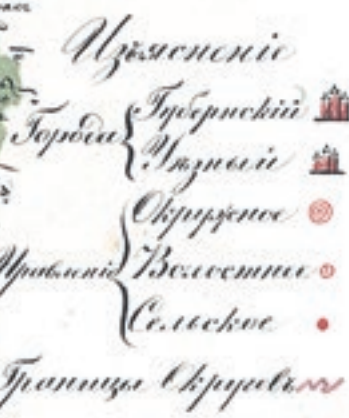 Изъясненіе
Города
Губернскій
Уѣзный
Управленіе
Окружное
Волостные
Сельское
Границы Округовъ